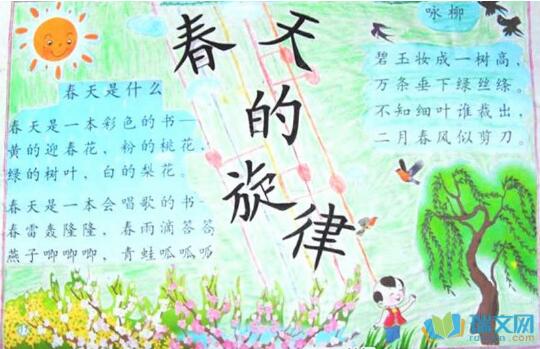 春天的旋律
春天是什么
春天是一本彩色的书—
黄的迎春花，粉的桃花，
绿的树叶，白的梨花。
春天是一本会唱歌的书—
春雷轰隆隆，春雨滴答答
燕子唧唧唧，青蛙呱呱呱
咏柳
碧玉妆成一树高，
万条垂下绿丝绦。
不知细叶谁裁出，
二月春风似剪刀。
瑞文网